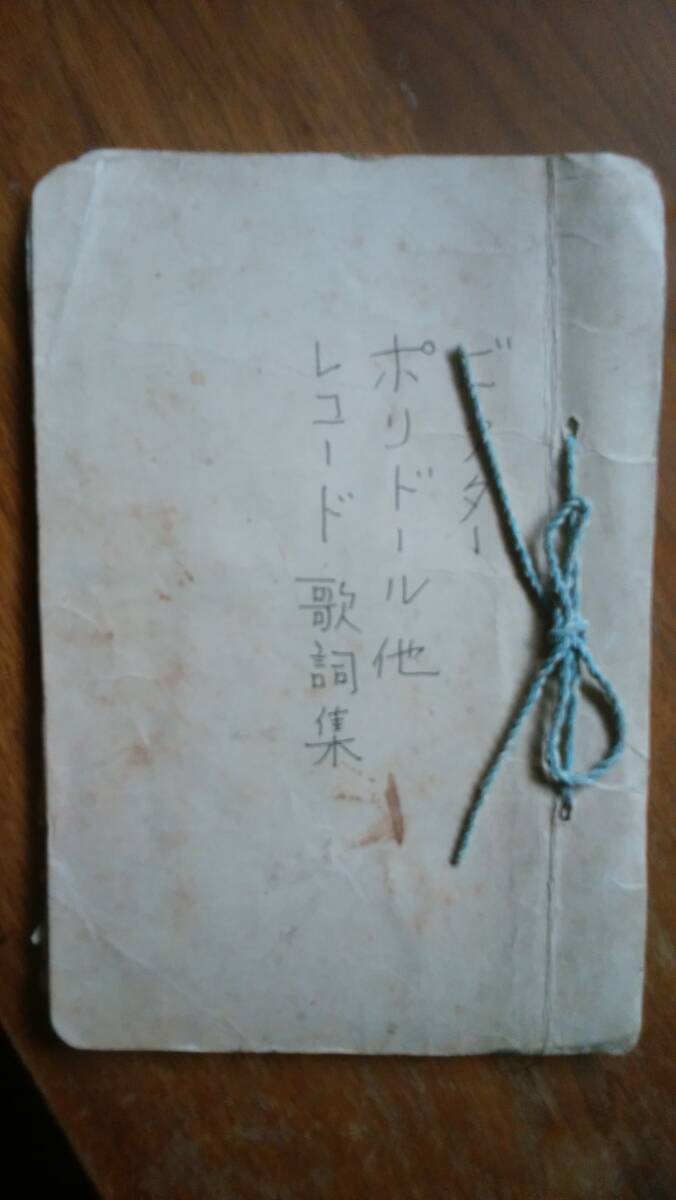 ビクター
ポリドール他
レコード歌詞集